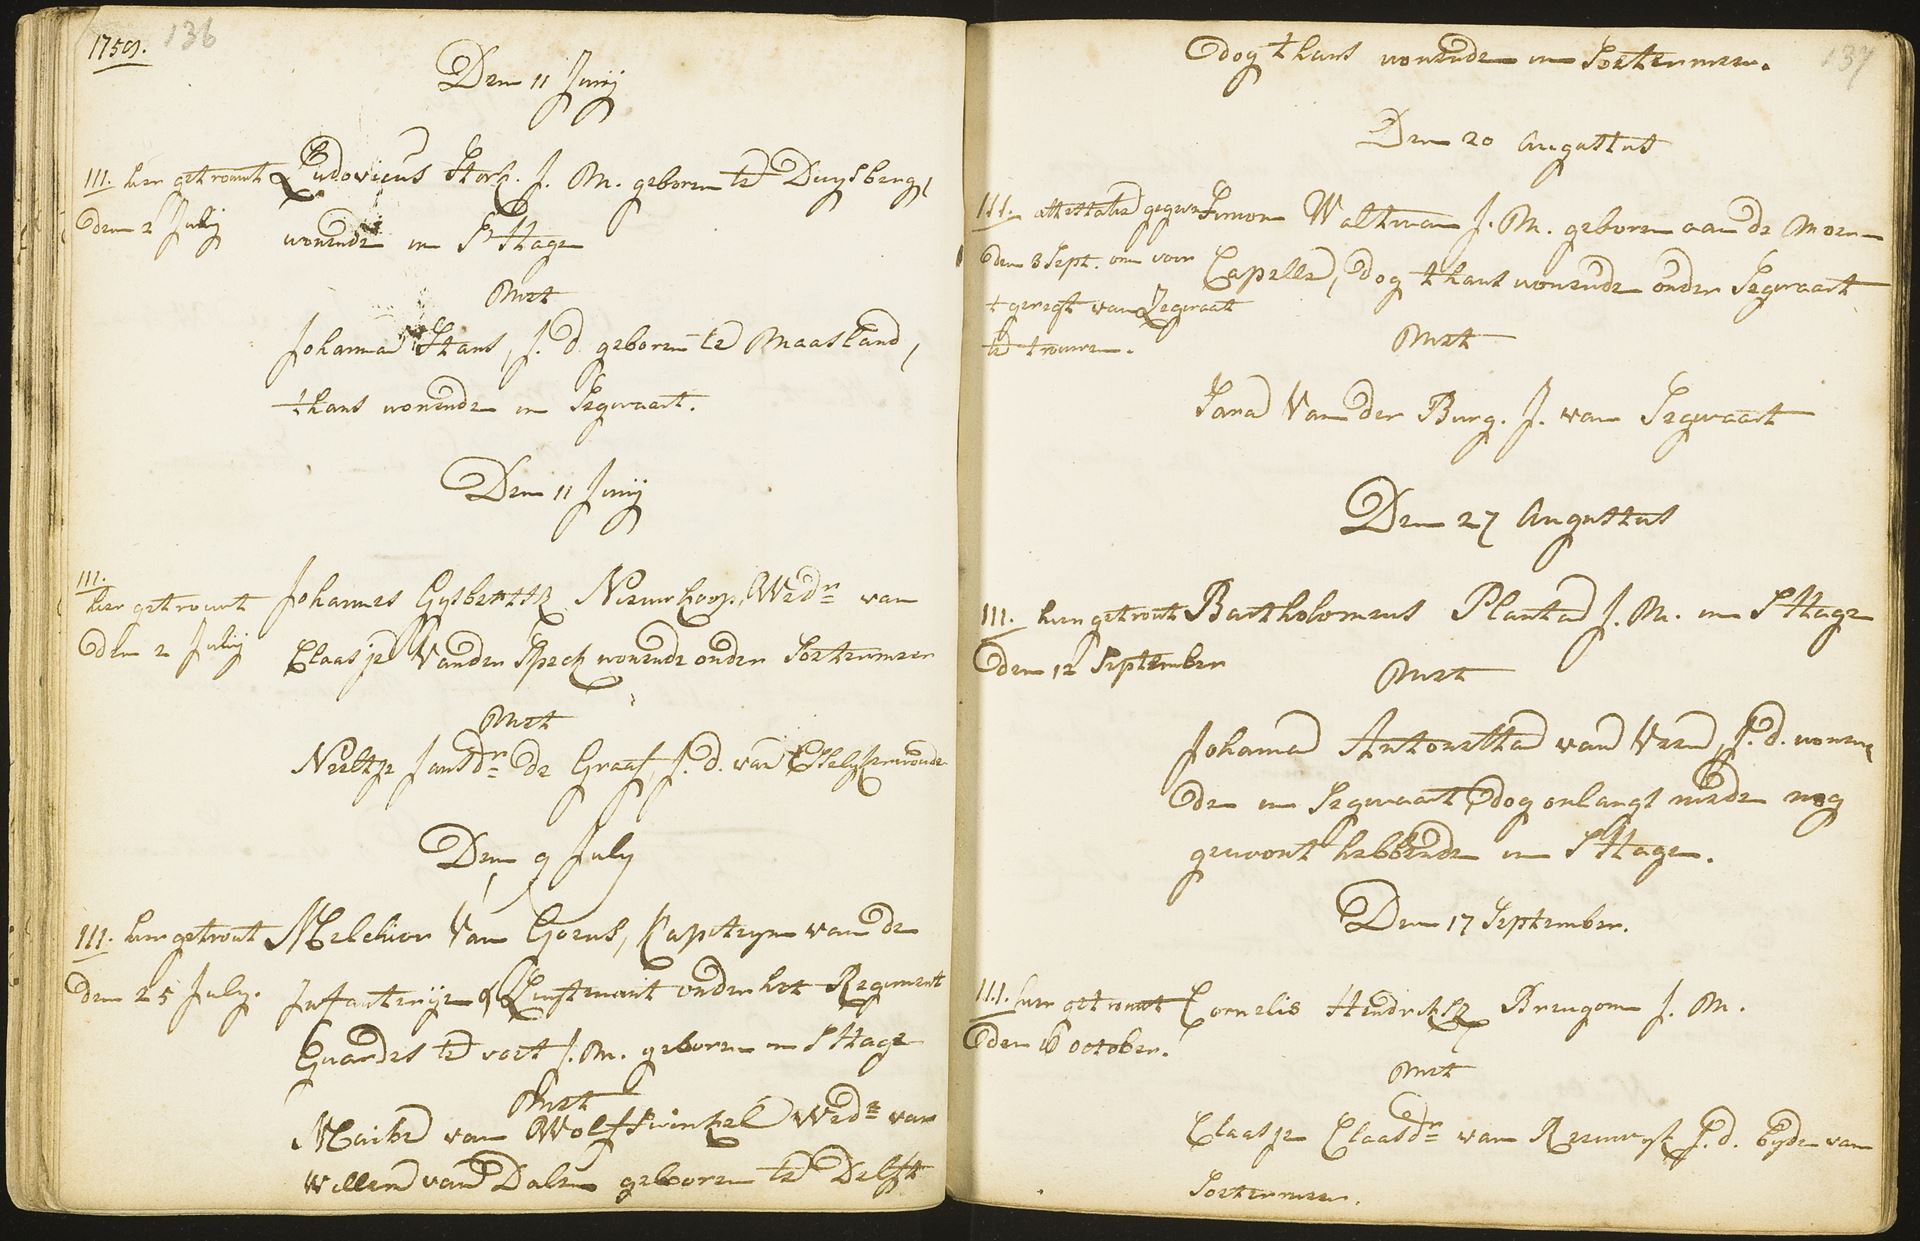 1759. 136
Den 11 Junij
III. hier getrouwt Ludovicus Stork. J. M. geboren te Duysberg,
den 2 July wonende in S'Hage
Met
Johanna Hans, J. d. geboren te Maasland,
thans wonende in Segwaart.
Den 11 Junij
III.
hier getrouwt Johannes Gysbertsz Nieuwkoop, Wedr van
den 2 July Claasje Vander Speck wonende onder Soetermeer
Met
Neeltje Jansdr de Graaf, J. d. van
Den 9 July
III. hier getrout Melchior Van Goens, Capiteyn van de
den 25 July. Infanterije & Lieutenant onder het Regiment
Guardes te voet J. M. geboren in S'Hage
Met
van Wolfswinkel Wede van
Willem van Dalen geboren te Delft
137
dog thans wonende in Soetermeer.
Den 20 Augustus
III. attestatie gegeven Simon Waltman J. M. geboren aan de Moer-
den 3 Sept. om voor Capelle, dog thans wonende onder Segwaart
t geregt van Zegwaart
te trouwen. Met
Sara Van der Burg. J. van Segwaart
Den 27 Augustus
III. hier getrout Bartholomeus Planta J. M. in S'Hage
den 12 September
Met
Johanna Antonetta van Veen, J. d. wonen-
de in Segwaart dog onlangs mede nog
gewont hebbende in S'Hage.
Den 17 September.
III. hier getrouwt Cornelis Hendriksz Breugom J. M.
den 16 October.
Met
Claasje Claasdr van J. d. byde van
Soetermeer.